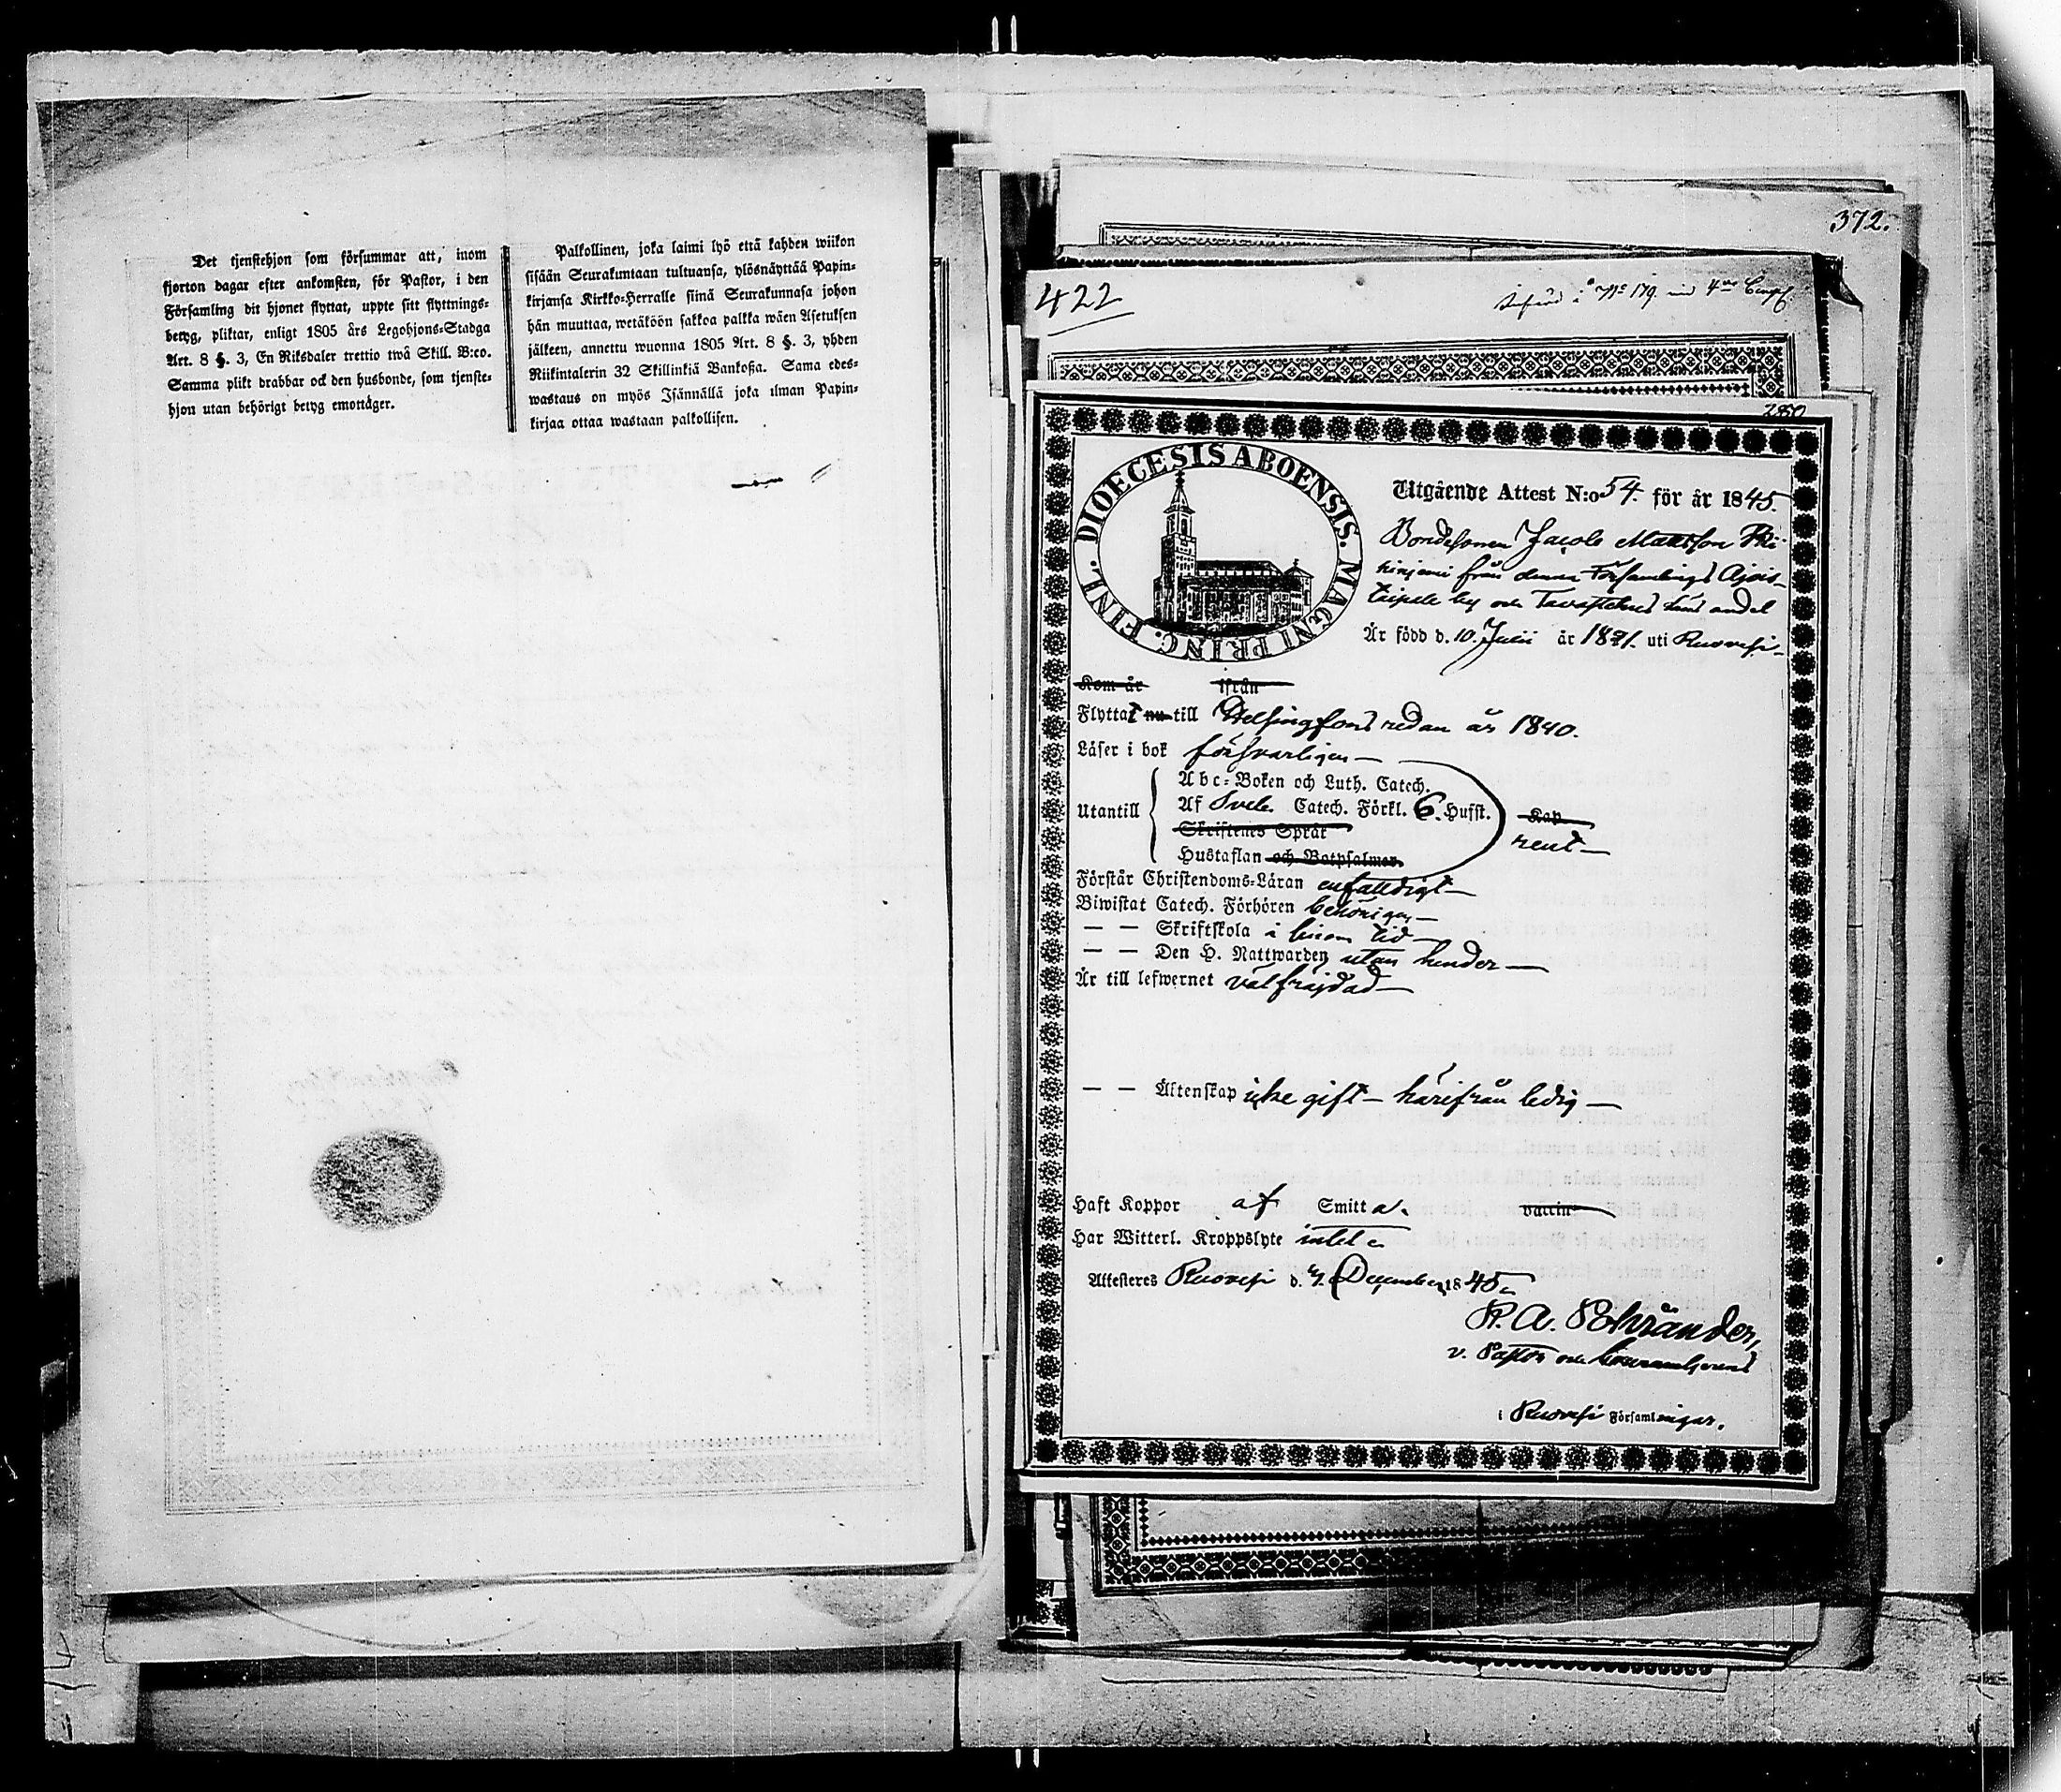 Det tjenstehjon som försummar att, inom
fjorton dagar efter ankomsten, för Pastor, i den
Församling dit hjonet flyttat, uppte sitt flyttnings-
betyg, pliktar, enligt 1805 års Legohjons-Stadga
Art. 8 §. 3, En Riksdaler trettio twå Skill. B:co.
Samma plikt drabbar ock den husbonde, som tjenste-
hjon utan behörigt betyg emottager.
Palkollinen, joka laimi lyö että kahden wiikon
sisään Seurakuntaan tultuansa, ylösnäyttää Papin-
kirjansa Kirkko-Herralle siinä Seurakunnasa johon
hän muuttaa, wetäköön sakkoa palkka wäen Asetuksen
jälkeen, annettu wuonna 1805 Art. 8 §. 3, yhden
Riikintalerin 32 Skillinkiä Bankoßa. Sama edes-
wastaus on myös Isännällä joka ilman Papin-
kirjaa ottaa wastaan palkollisen.
372.
422
280
DIOECESIS ABOENSIS. MAGNI PRINC. FINL.
Utgående Attest N:o 54. för år 1845.
Bondesonen Jacob Mattsson
från denna Församlings Ajois-
taipale by och Tavastehus läns andel
Är född d. 10. Julii år 1821. uti Ruovesi
Kom år ifrån
Flyttat nu till Helsingfors redan år 1840.
Läser i bok försvarligen
Abc-Boken och Luth. Catech.
Utantill Af Sveb. Catech. Förkl. 6. Hufst. Kap
Skriftenes Språk rent
Hustaflan och Botpsalmer
Förstår Christendoms-Läran enfaldigt
Biwistat Catech. Förhören behörigen
— — Skriftskola i sinom tid
— — Den H. Nattwarden utan hinder
Är till lefwernet välfräjdad
— — Äktenskap icke gift — härifrån ledig
Haft Koppor af Smitta. vaccin
Har Witterl. Kroppslyte intet
Attesteras Ruovesi d. 4. December 1845
v. Pastor och
i Ruovesi Församlingar.